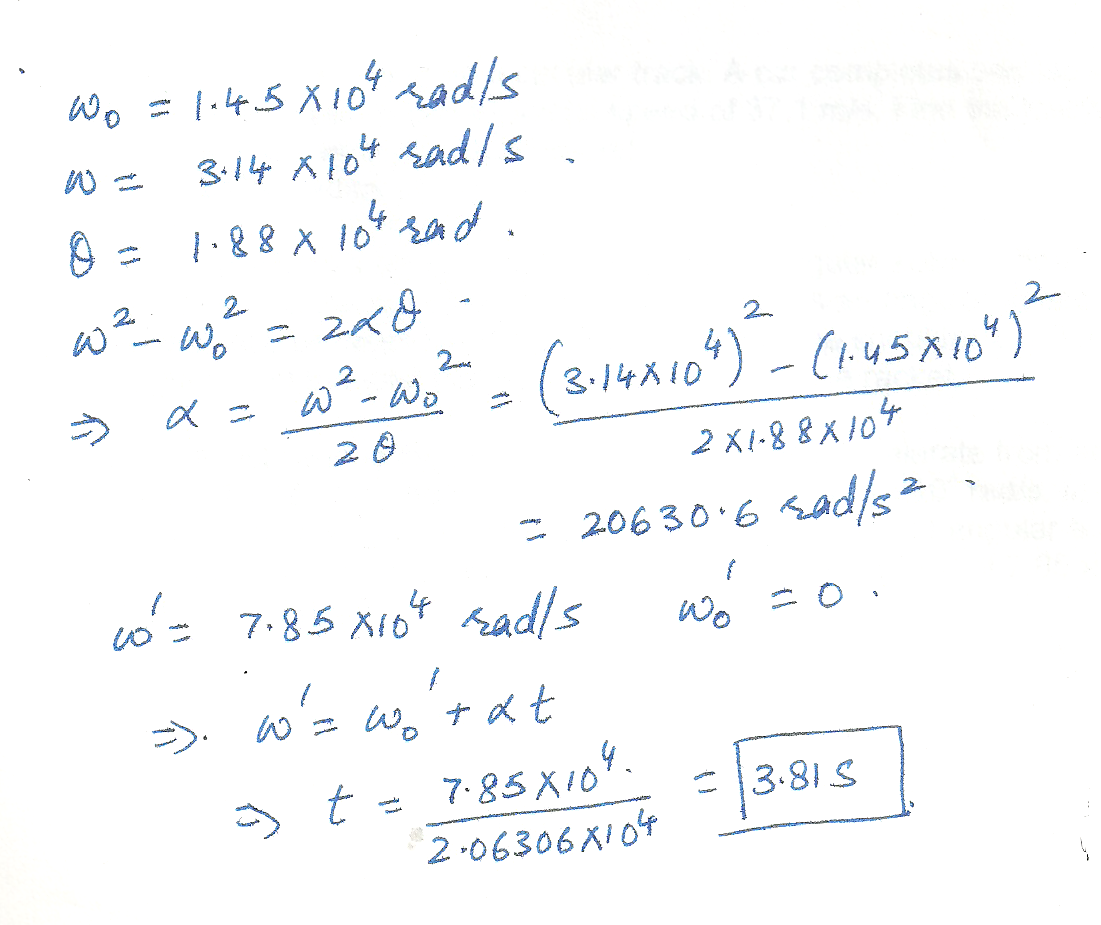 ω₀ = 1.45 × 10⁴ rad/s
ω = 3.14 × 10⁴ rad/s .
θ = 1.88 × 10⁴ rad .
ω² - ω₀² = 2αθ
⇒ α = (ω² - ω₀²) / 2θ = ((3.14×10⁴)² - (1.45×10⁴)²) / (2×1.88×10⁴)
= 20630.6 rad/s²
ω' = 7.85 ×10⁴ rad/s ω₀' = 0 .
⇒. ω' = ω₀' + αt
⇒ t = 7.85×10⁴. / 2.06306×10⁴ = 3.81 S